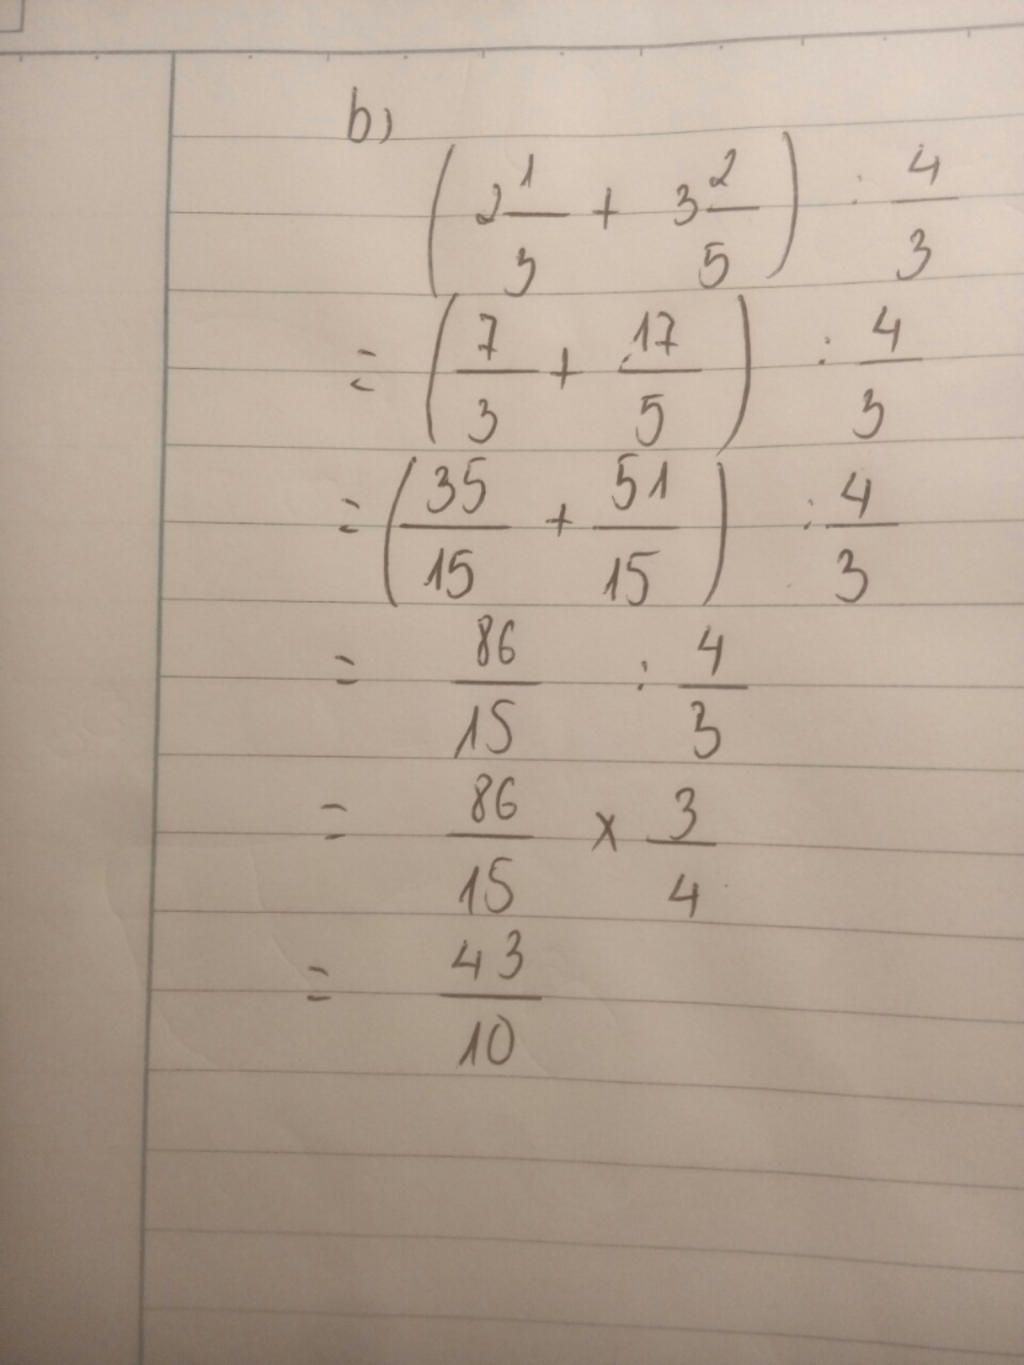 b)
(2 1/3 + 3 2/5) : 4/3
= (7/3 + 17/5) : 4/3
= (35/15 + 51/15) : 4/3
= 86/15 : 4/3
= 86/15 x 3/4
= 43/10